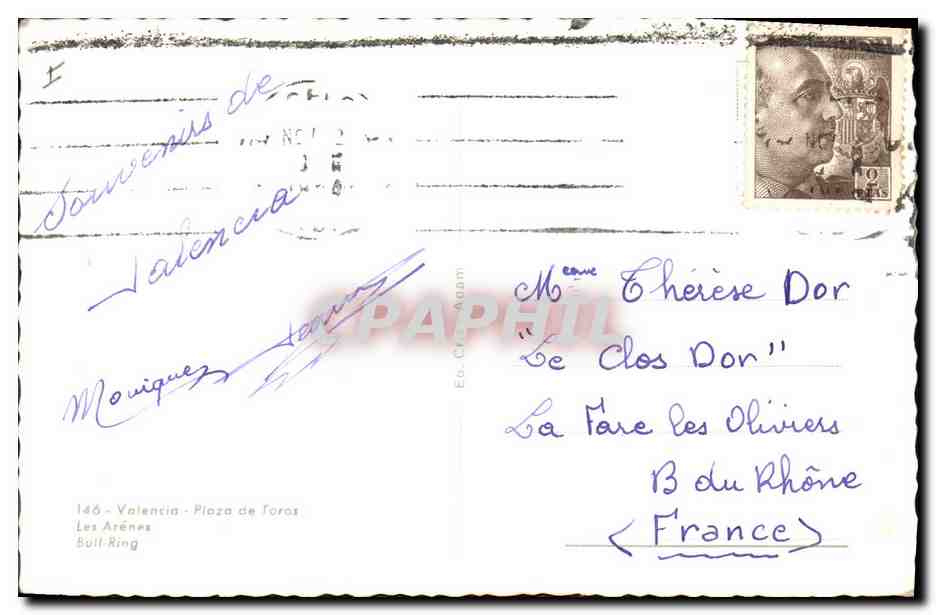 Souvenirs de
Valencia
Monique
146 - Valencia - Plaza de Toros
Les Arénes
Bull-Ring
CPAPHIL
Mme Thérèse Dor
"Le Clos Dor"
La Fare les Oliviers
B du Rhône
(France)